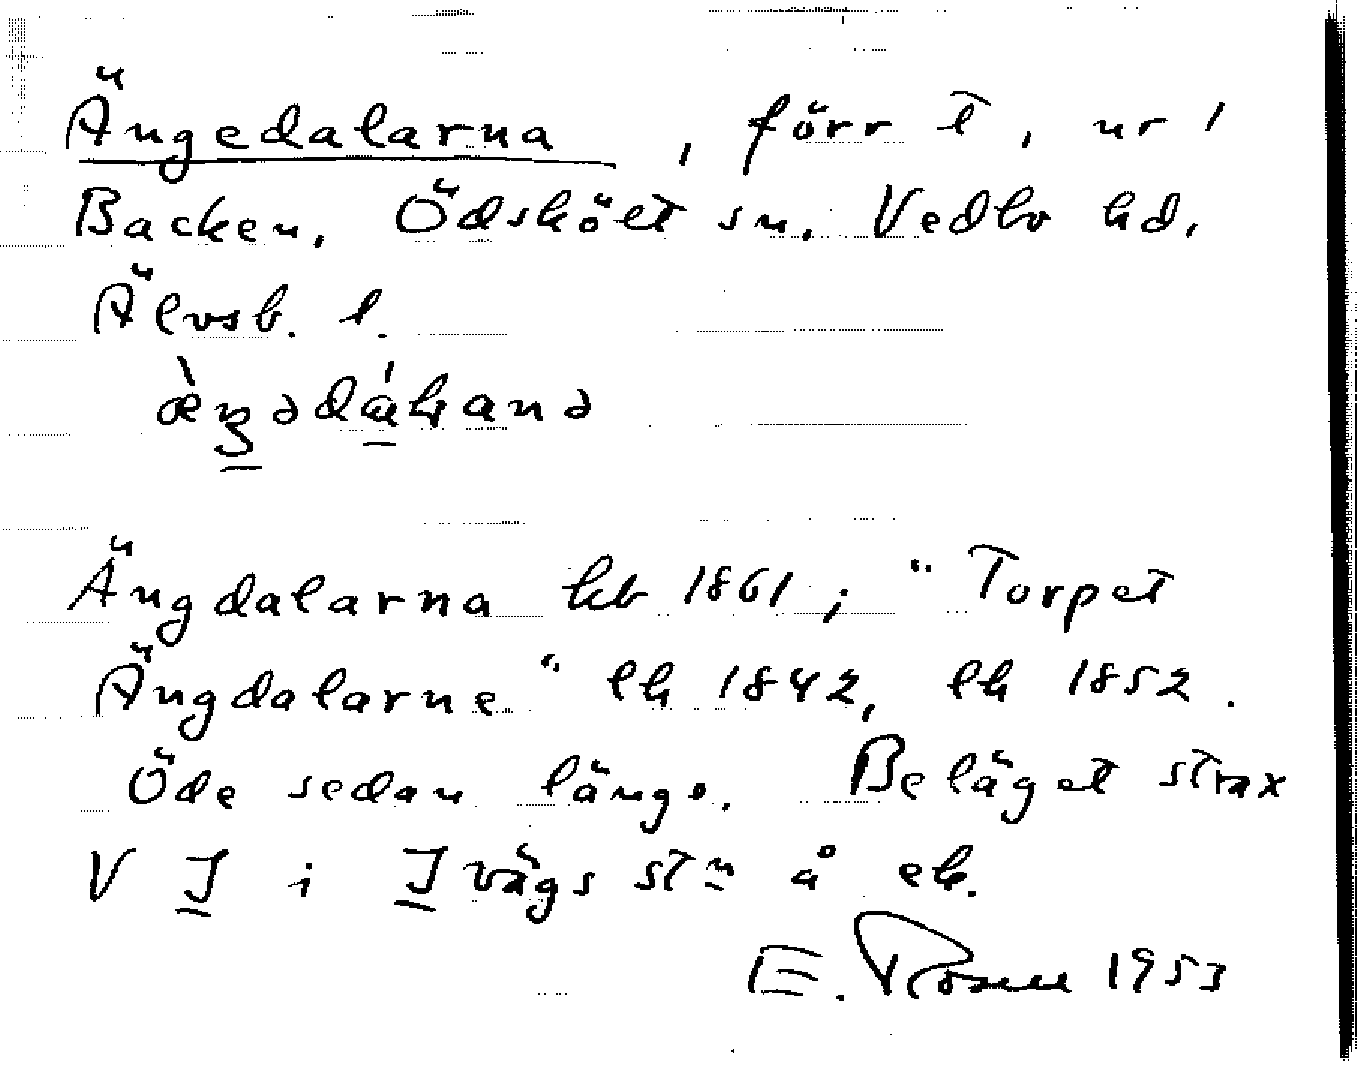 Ängedalarna, förr t, nr 1
Backen, Ödskölt sn. Vedbo hd,
Älvsb. l.
Ängdalarna kb 1861; "Torpet
Ängdalarne" lh 1842, lh 1852.
Öde sedan länge. Beläget strax
V I i Ivägs stn å ek.
E. Rosell 1953